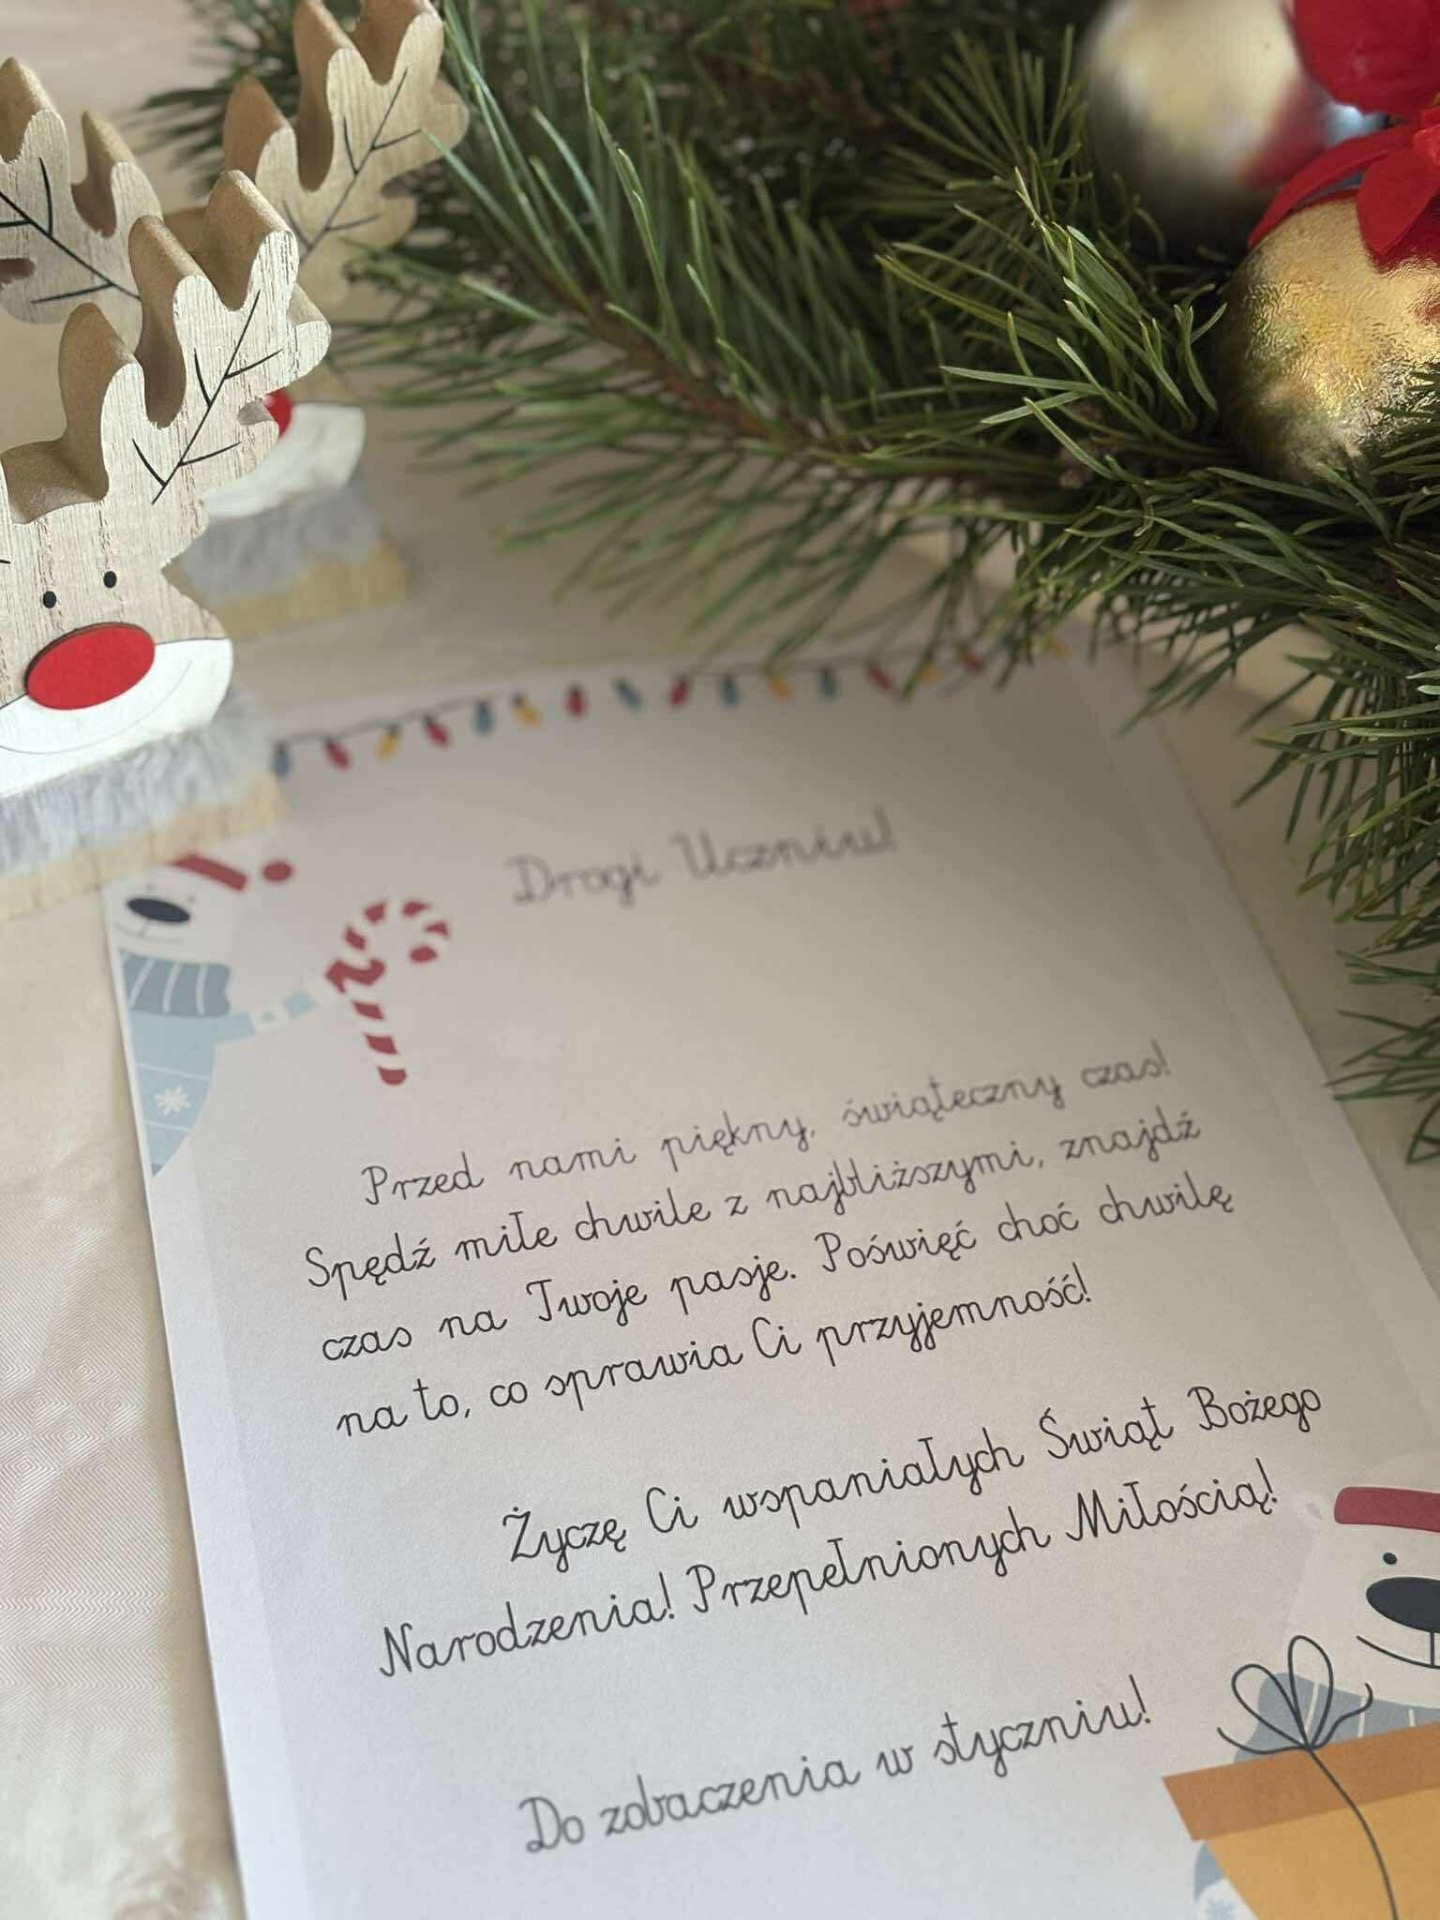 Drogi Uczniu!
Przed nami piękny, świąteczny czas!
Spędź miłe chwile z najbliższymi, znajdź
czas na Twoje pasje. Poświęć choć chwilę
na to, co sprawia Ci przyjemność!
Życzę Ci wspaniałych Świąt Bożego
Narodzenia! Przepełnionych Miłością!
Do zobaczenia w styczniu!